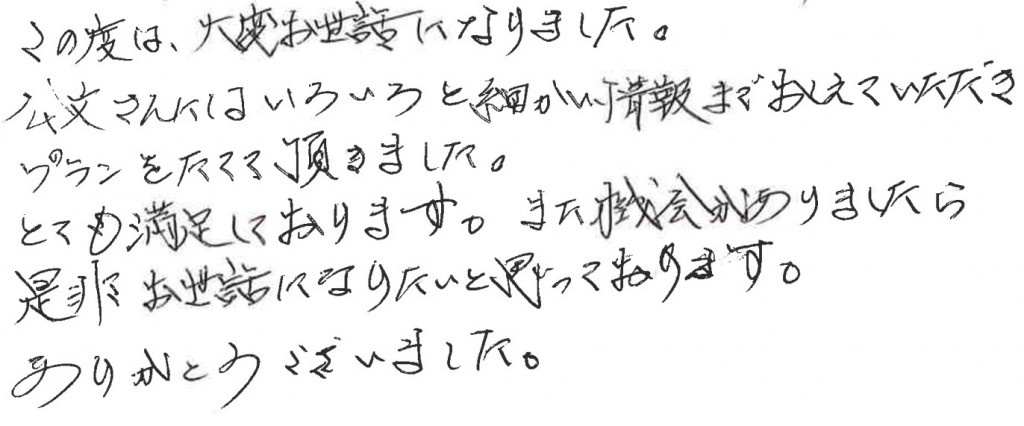 この度は、大変お世話になりました。
公文さんにはいろいろと細かい情報までおしえていただき
プランをたてて頂きました。
とても満足しております。また機会がありましたら
是非お世話になりたいと思っております。
ありがとうございました。